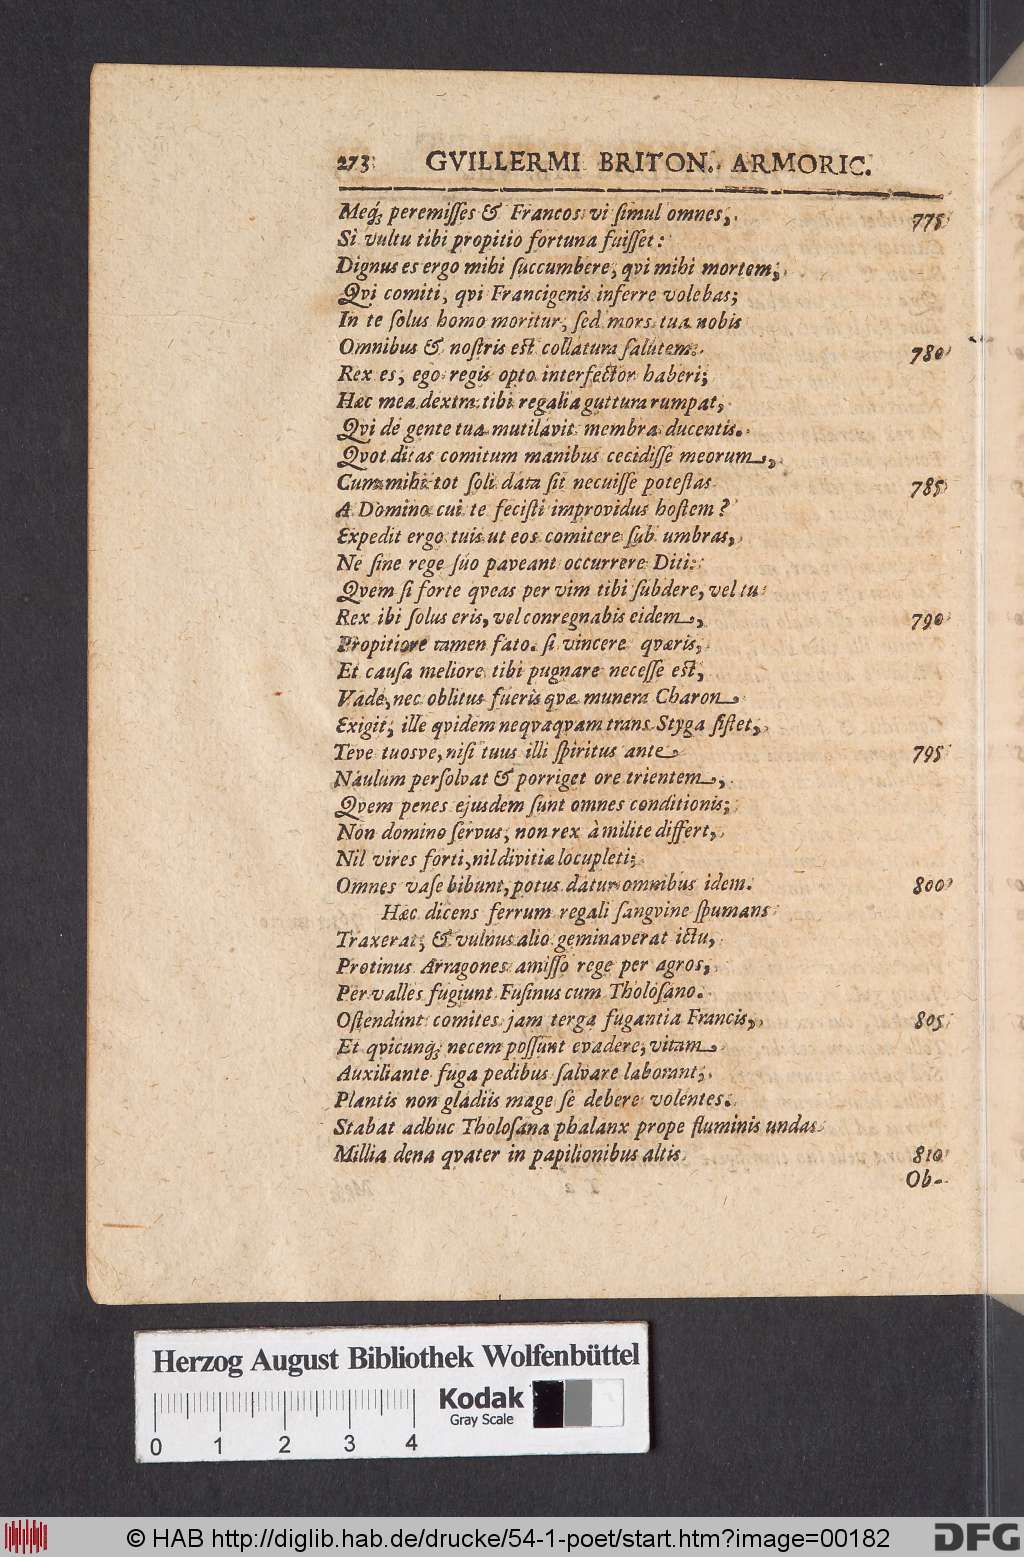 273 GVILLERMI BRITON. ARMORIC.
Meq́; peremiſſes & Francos vi ſimul omnes, 775
Si vultu tibi propitio fortuna fuiſſet:
Dignus es ergo mihi ſuccumbere, qvi mihi mortem,
Qvi comiti, qvi Francigenis inferre volebas;
In te ſolus homo moritur, ſed mors tua nobis
Omnibus & noſtris est collatura ſalutem. 780
Rex es, ego regis opto interfector haberi;
Hæc mea dextra tibi regalia guttura rumpat,
Qvi de gente tua mutilavit membra ducentis.
Qvot ditas comitum manibus cecidiſſe meorum,
Cum mihi tot ſoli data ſit necuiſſe poteſtas 785
A Domino cui te feciſti improvidus hoſtem?
Expedit ergo tuis ut eos comitere ſub umbras,
Ne ſine rege ſuo paveant occurrere Diti:
Qvem ſi forte qveas per vim tibi ſubdere, vel tu
Rex ibi ſolus eris, vel conregnabis eidem, 790
Propitiore tamen fato. ſi vincere qværis,
Et cauſa meliore tibi pugnare neceſſe est,
Vade, nec oblitus fueris qvæ munera Charon
Exigit, ille qvidem neqvaqvam trans Styga ſiſtet,
Teve tuosve, niſi tuus illi ſpiritus ante 795
Naulum perſolvat & porriget ore trientem,
Qvem penes ejusdem ſunt omnes conditionis;
Non domino ſervus, non rex à milite differt,
Nil vires forti, nil divitiæ locupleti;
Omnes vaſe bibunt, potus datur omnibus idem. 800
Hæc dicens ferrum regali ſangvine ſpumans
Traxerat, & vulnus alio geminaverat ictu,
Protinus Arragones amiſſo rege per agros,
Per valles fugiunt Fuſinus cum Tholoſano.
Oſtendunt comites jam terga fugantia Francis, 805
Et qvicunq́; necem poſſunt evadere, vitam
Auxiliante fuga pedibus ſalvare laborant,
Plantis non gladiis mage ſe debere volentes.
Stabat adhuc Tholoſana phalanx prope fluminis undas
Millia dena qvater in papilionibus altis 810
Ob-
Herzog August Bibliothek Wolfenbüttel
Kodak
Gray Scale
0 1 2 3 4
© HAB http://diglib.hab.de/drucke/54-1-poet/start.htm?image=00182
DFG